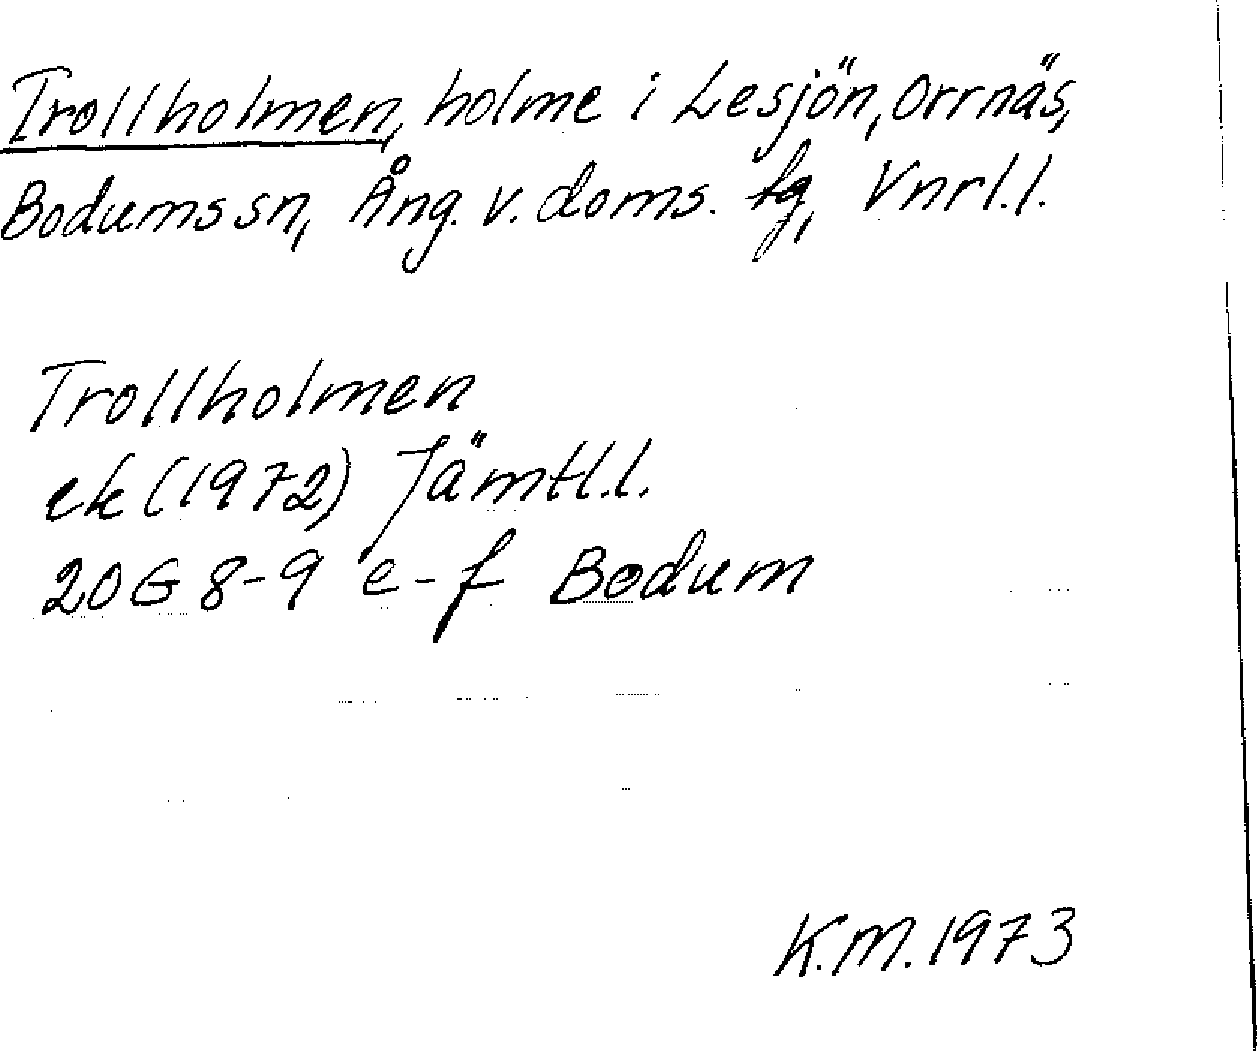 Trollholmen, holme i Lesjön, Orrnäs,
Bodums sn, Ång. v. doms. fg, Vnrl.l.
Trollholmen
ek (1972) Jämtl.l.
20G 8-9 e-f Bodum
K.M. 1973